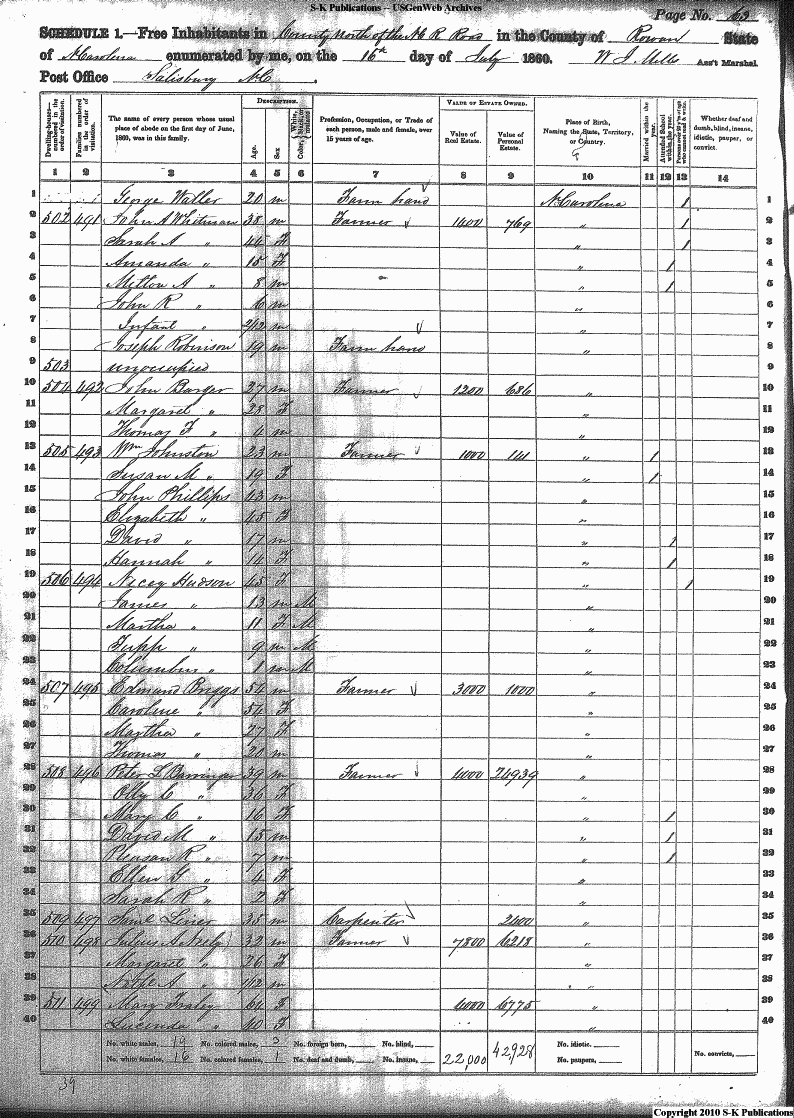 S-K Publications -- USGenWeb Archives
Page No. 63
SCHEDULE 1.—Free Inhabitants in County North of the N.C. R. Road in the County of Rowan State
of N Carolina enumerated by me, on the 16th day of July 1860. W. J. Mills Ass't Marshal.
Post Office Salisbury N C.
DESCRIPTION. VALUE OF ESTATE OWNED.
Dwelling-houses—numbered in the order of visitation. Families numbered in the order of visitation. The name of every person whose usual place of abode on the first day of June, 1860, was in this family. Age. Sex. Color, Profession, Occupation, or Trade of each person, male and female, over 15 years of age. Value of Real Estate. Value of Personal Estate. Place of Birth, Naming the State, Territory, or Country. Married within the year. Attended School within the year. Whether deaf and dumb, blind, insane, idiotic, pauper, or convict.
1 2 3 4 5 6 7 8 9 10 11 12 13 14
1 George Waller 20 m Farm hand N Carolina / 1
2 502 491 John A Whitman 38 m Farmer 1400 769 " / 2
3 Sarah A " 44 F " / 3
4 Amanda " 15 F " / 4
5 Milton A " 8 m " / 5
6 John R " 6 m " 6
7 Infant " 2/12 m 7
8 Joseph Robinson 19 m Farm hand " 8
9 503 unoccupied 9
10 504 492 John Barger 27 m Farmer 1200 686 " 10
11 Margaret " 28 F " 11
12 Thomas F " 4 m " 12
13 505 493 Wm Johnston 23 m Farmer 1000 141 " / 13
14 Susan M " 19 F " / 14
15 John Phillips 43 m " 15
16 Elizabeth " 45 F " 16
17 David " 17 m " / 17
18 Hannah " 14 F " / 18
19 506 494 Nicey Hudson 45 F " / 19
20 James " 13 m M " 20
21 Martha " 11 F M " 21
22 Tupp " 9 m M " 22
23 Columbus " 1 m M " 23
24 507 495 Edmund Briggs 54 m Farmer 3000 1000 " 24
25 Caroline " 54 F " 25
26 Martha " 27 F " 26
27 Thomas " 20 m " 27
28 508 496 Peter L Barringer 39 m Farmer 4000 24939 " 28
29 Olly C " 36 F " 29
30 Mary C " 16 F " / 30
31 David M " 15 m " / 31
32 Pleasan R " 7 m " / 32
33 Ellen G " 4 F " 33
34 Sarah R " 2 F " 34
35 509 497 Saml 35 m Carpenter 2400 " 35
36 510 498 Julius A Neely 32 m Farmer 7800 6218 " 36
37 Margaret " 26 F " 37
38 A " 1/12 m " 38
39 511 499 Mary Fraley 64 F 4000 6775 " 39
40 Lucinda " 40 F " 40
No. white males, 19 No. colored males, 3 No. foreign born, No. blind, No. idiotic,
No. white females, 16 No. colored females, 1 No. deaf and dumb, No. insane, 22,000 42928 No. paupers, No. convicts,
39
Copyright 2010 S-K Publications